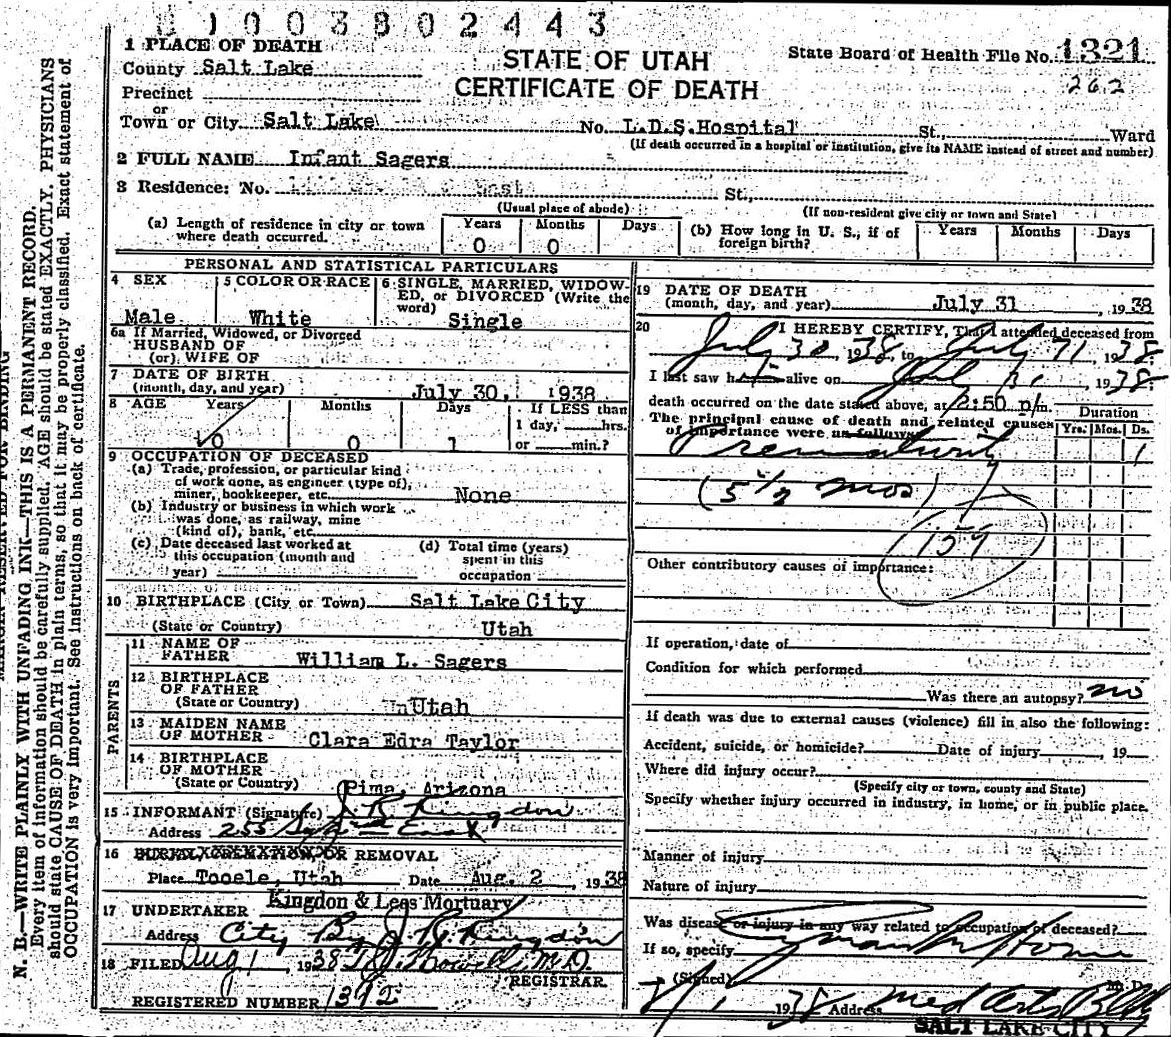 1003802443
1 PLACE OF DEATH
County Salt Lake
STATE OF UTAH
CERTIFICATE OF DEATH
State Board of Health File No. 1321
262
Precinct
or
Town or City Salt Lake No. L.D.S. Hospital St., Ward
(If death occurred in a hospital or institution, give its NAME instead of street and number)
2 FULL NAME Infant Sagers
3 Residence: No. East St.,
(Usual place of abode) (If non-resident give city or town and State)
(a) Length of residence in city or town where death occurred. Years 0 Months 0 Days
(b) How long in U. S., if of foreign birth? Years Months Days
PERSONAL AND STATISTICAL PARTICULARS
4 SEX Male
5 COLOR OR RACE White
6 SINGLE, MARRIED, WIDOWED, or DIVORCED (Write the word) Single
6a If Married, Widowed, or Divorced
HUSBAND OF
(or) WIFE OF
7 DATE OF BIRTH
(month, day, and year) July 30, 1938
8 AGE Years 0 Months 0 Days 1 If LESS than 1 day, hrs. or min.?
9 OCCUPATION OF DECEASED
(a) Trade, profession, or particular kind
of work done, as engineer (type of),
miner, bookkeeper, etc. None
(b) Industry or business in which work
was done, as railway, mine
(kind of), bank, etc.
(c) Date deceased last worked at
this occupation (month and
year)
(d) Total time (years)
spent in this
occupation
10 BIRTHPLACE (City or Town) Salt Lake City
(State or Country) Utah
PARENTS
11 NAME OF
FATHER William L. Sagers
12 BIRTHPLACE
OF FATHER
(State or Country) Utah
13 MAIDEN NAME
OF MOTHER Clara Edra Taylor
14 BIRTHPLACE
OF MOTHER
(State or Country) Pima, Arizona
15 INFORMANT (Signature) J. R. Kingdon
Address 255
16 REMOVAL
Place Tooele, Utah Date Aug. 2, 1938
17 UNDERTAKER Kingdon & Lees Mortuary
Address City By J R Kingdon
18 FILED Aug 1, 1938 M.D.
REGISTRAR
REGISTERED NUMBER 1392
19 DATE OF DEATH
(month, day, and year) July 31, 1938
20 I HEREBY CERTIFY, That I attended deceased from
July 30 1938, to July 31, 1938.
I last saw h alive on July 31, 1938
death occurred on the date stated above, at 2:50 p/m.
The principal cause of death and related causes
of importance were as follows:
Duration
Yrs. Mos. Ds.
Prematurity 1
(5 1/2 mos)
159
Other contributory causes of importance:
If operation, date of
Condition for which performed
Was there an autopsy? no
If death was due to external causes (violence) fill in also the following:
Accident, suicide, or homicide? Date of injury , 19
Where did injury occur?
(Specify city or town, county and State)
Specify whether injury occurred in industry, in home, or in public place.
Manner of injury
Nature of injury
Was disease or injury in any way related to occupation of deceased?
If so, specify
(Signed) M. D.
8/1 1938 Address Med Arts Bldg
SALT LAKE CITY
MARGIN RESERVED FOR BINDING
N. B.—WRITE PLAINLY WITH UNFADING INK—THIS IS A PERMANENT RECORD.
Every item of information should be carefully supplied. AGE should be stated EXACTLY. PHYSICIANS
should state CAUSE OF DEATH in plain terms, so that it may be properly classified. Exact statement of
OCCUPATION is very important. See instructions on back of certificate.